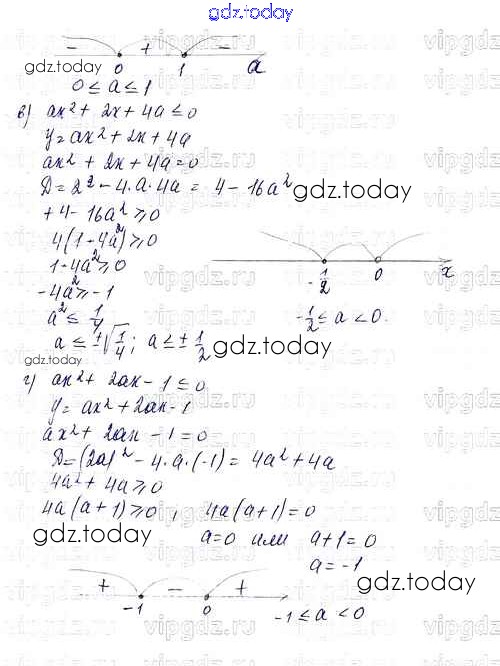 gdz.today
- + -
gdz.today 0 1 a
0 ≤ a ≤ 1
в) ax² + 2x + 4a ≤ 0
y = ax² + 2x + 4a
ax² + 2x + 4a = 0
D = 2² - 4·a·4a = 4 - 16a² gdz.today
+ 4 - 16a² ≥ 0
4(1 - 4a²) ≥ 0
1 - 4a² ≥ 0
-1/2 0 x
-4a² ≥ -1
a² ≤ 1/4
-1/2 ≤ a < 0
a ≤ ±√1/4; a ≤ ± 1/2 gdz.today
gdz.today
г) ax² + 2ax - 1 ≤ 0
y = ax² + 2ax - 1
ax² + 2ax - 1 = 0
D = (2a)² - 4·a·(-1) = 4a² + 4a
4a² + 4a ≥ 0
4a(a + 1) ≥ 0, 4a(a + 1) = 0
gdz.today a = 0 или a + 1 = 0
a = -1
gdz.today
+ - +
-1 0 -1 ≤ a < 0
vipgdz.ru